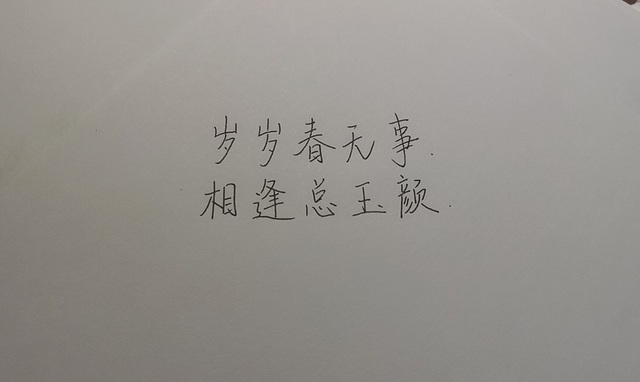 岁岁春无事.
相逢总玉颜.